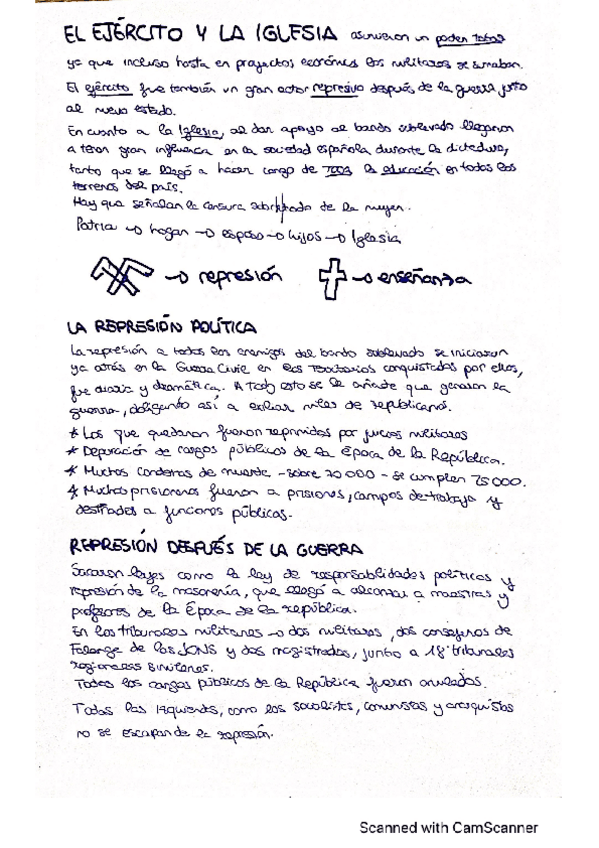 EL EJÉRCITO Y LA IGLESIA asumieron un poder total
ya que incluso hasta en proyectos económicos los militares se sumaban.
El ejército fue también un gran actor represivo después de la guerra junto
al nuevo estado.
En cuanto a la Iglesia, al dar apoyo al bando sublevado llegaron
a tener gran influencia en la sociedad española durante la dictadura,
tanto que se llegó a hacer cargo de toda la educación en todos los
terrenos del país.
Hay que señalar la censura de la mujer.
Patria → hogar → esposo → hijos → Iglesia
→ represión → enseñanza
LA REPRESIÓN POLÍTICA
La represión a todos los enemigos del bando sublevado se iniciaron
ya atrás en la Guerra Civil en los territorios conquistados por ellos,
fue diaria y dramática. A todo esto se le añade que ganaron la
guerra, obligando así a exiliar miles de republicanos.
* Los que quedaron fueron reprimidos por juicios militares
* Depuración de cargos públicos de la Época de la República.
* Muchas condenas de muerte - sobre - se cumplen 25000.
* Muchos prisioneros fueron a prisiones, campos de trabajo y
a funciones públicas.
REPRESIÓN DESPUÉS DE LA GUERRA
Sacaron leyes como la ley de responsabilidades políticas y
represión de la masonería, que llegó a alcanzar a maestras y
profesores de la Época de la república.
En los tribunales militares → dos militares, dos consejeros de
Falange de las JONS y dos magistrados, junto a 18 tribunales
regionales similares.
Todos los cargos públicos de la República fueron anulados.
Todas las izquierdas, como los socialistas, comunistas y anarquistas
no se escapan de la represión.
Scanned with CamScanner